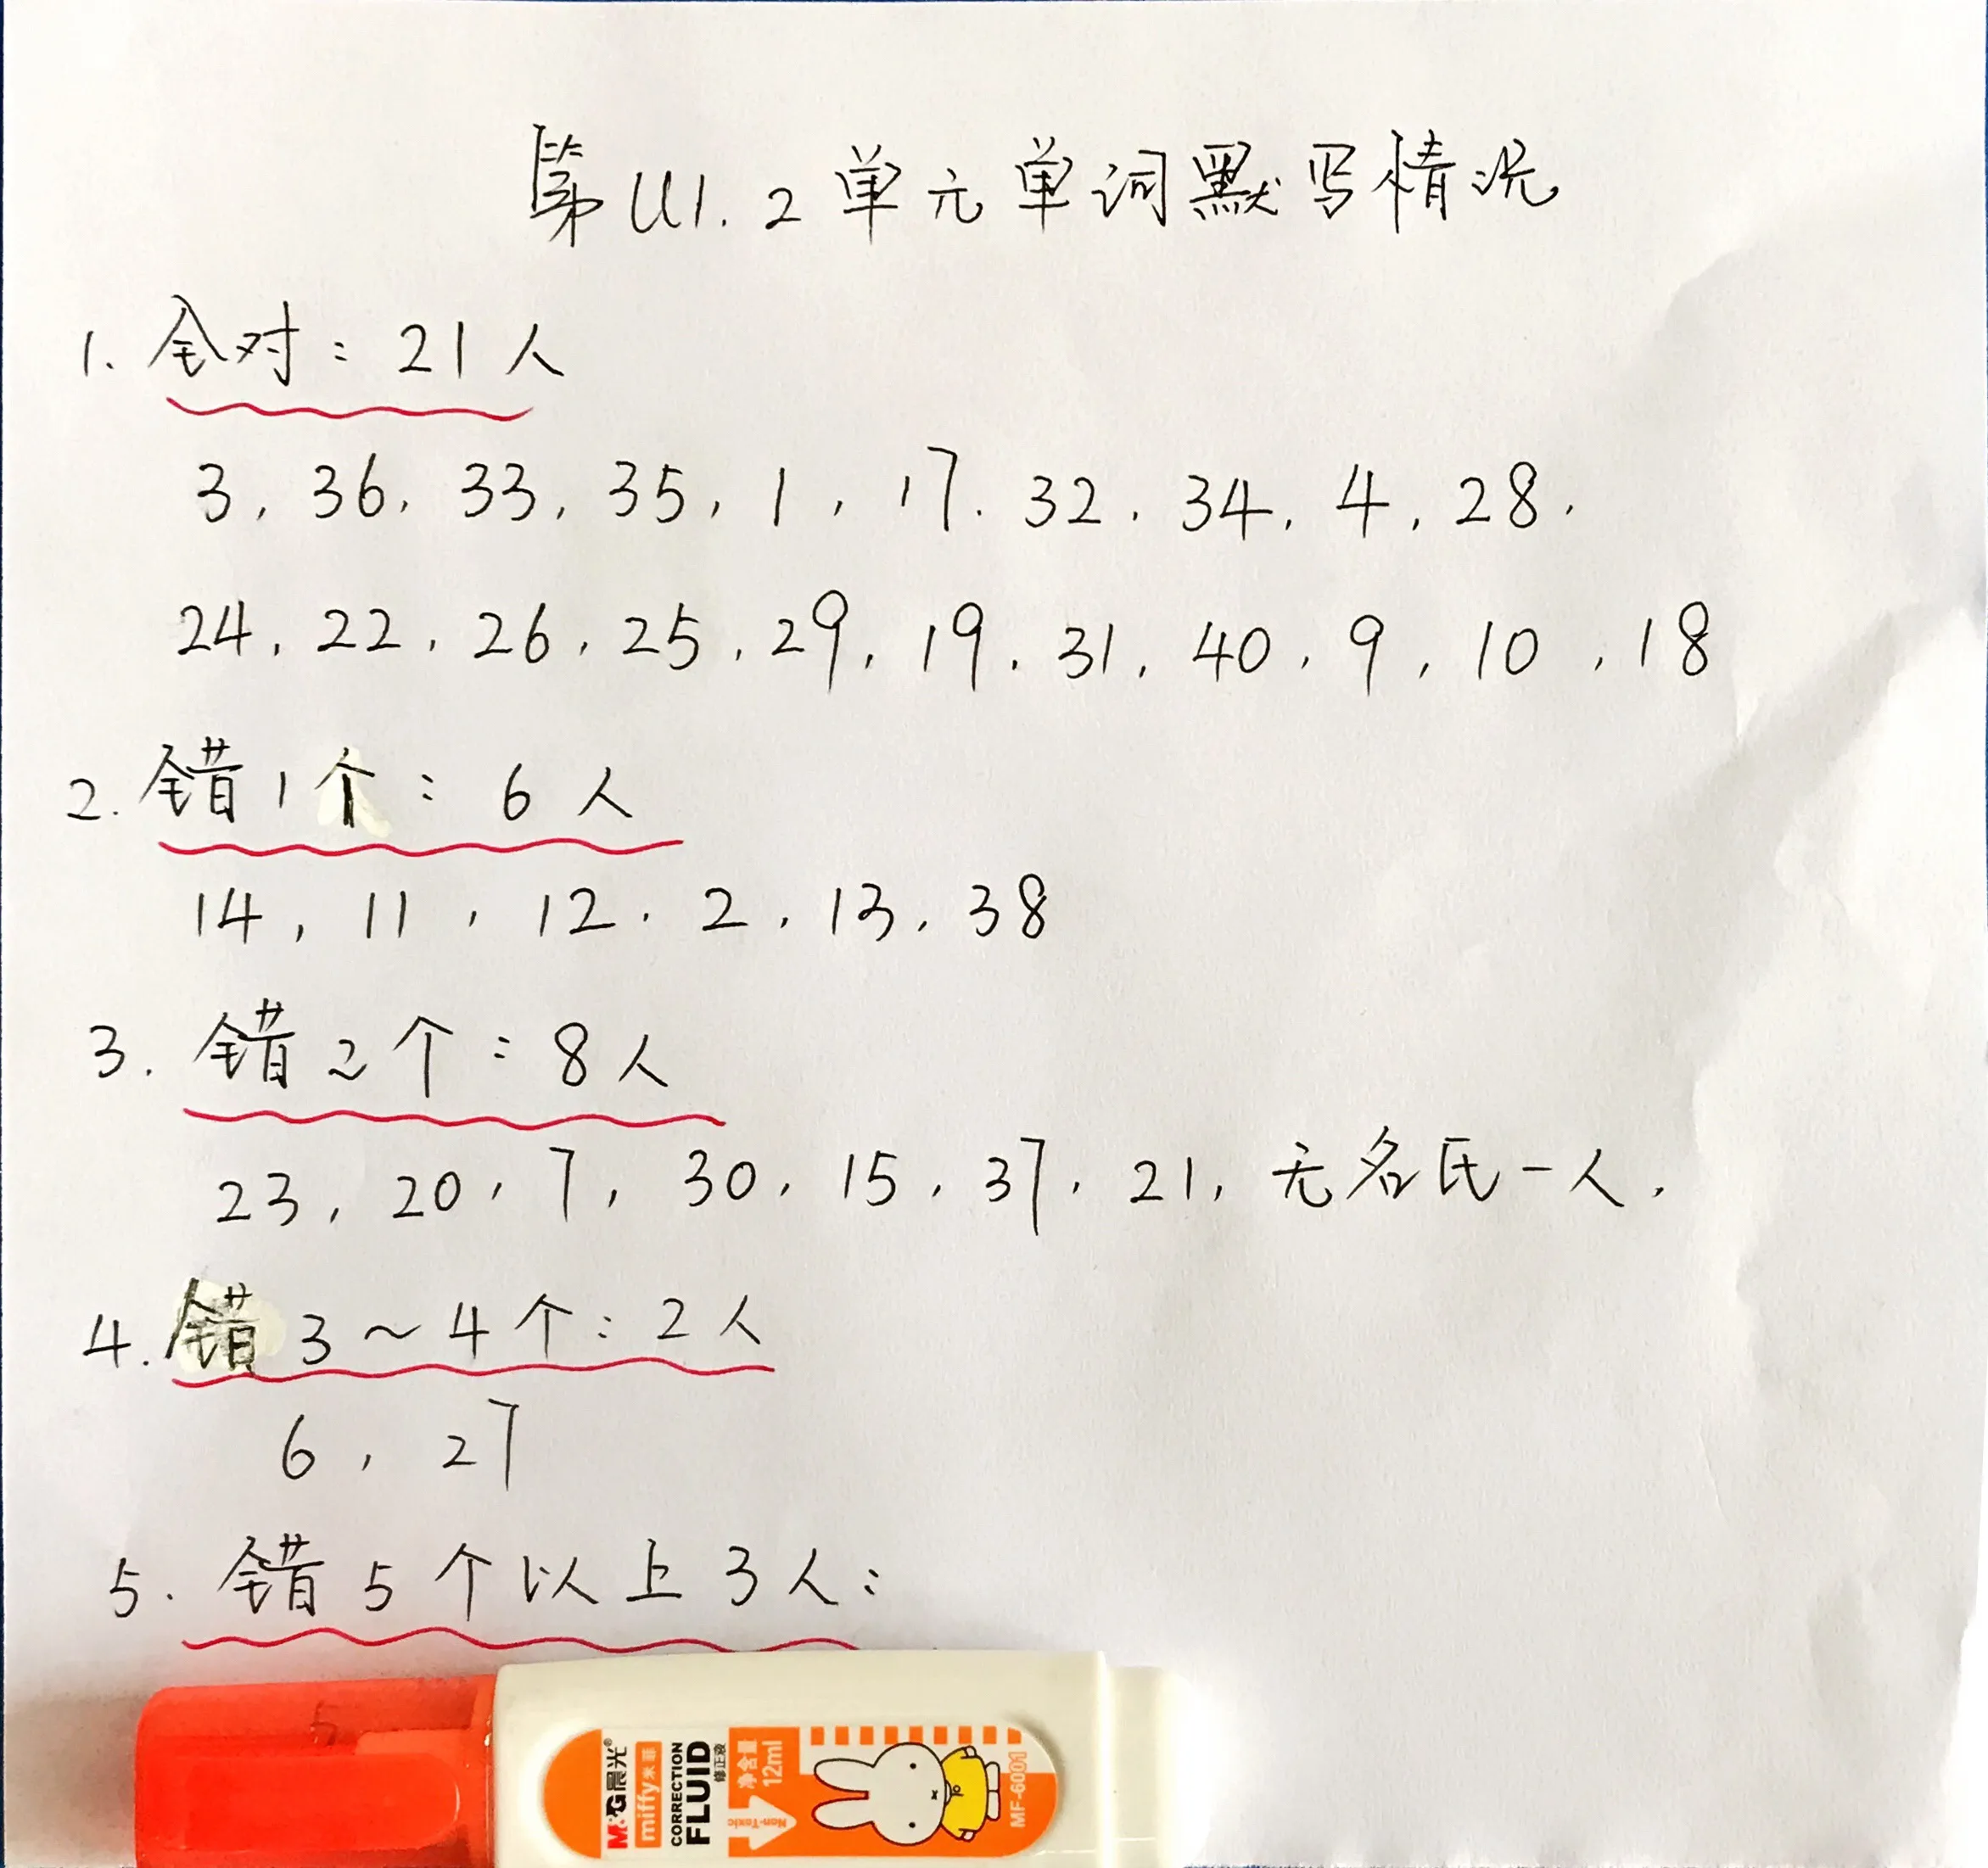 第U1.2单元单词默写情况
1. 全对：21人
3, 36, 33, 35, 1, 17. 32, 34, 4, 28,
24, 22, 26, 25, 29, 19, 31, 40, 9, 10, 18
2. 错1个：6人
14, 11, 12, 2, 13, 38
3. 错2个：8人
23, 20, 7, 30, 15, 37, 21, 无名氏一人,
4. 错3~4个：2人
6, 27
5. 错5个以上3人：
M&G晨光®
miffy米菲
CORRECTION
FLUID
修正液
Non-Toxic
净含量
12ml
MF-6001